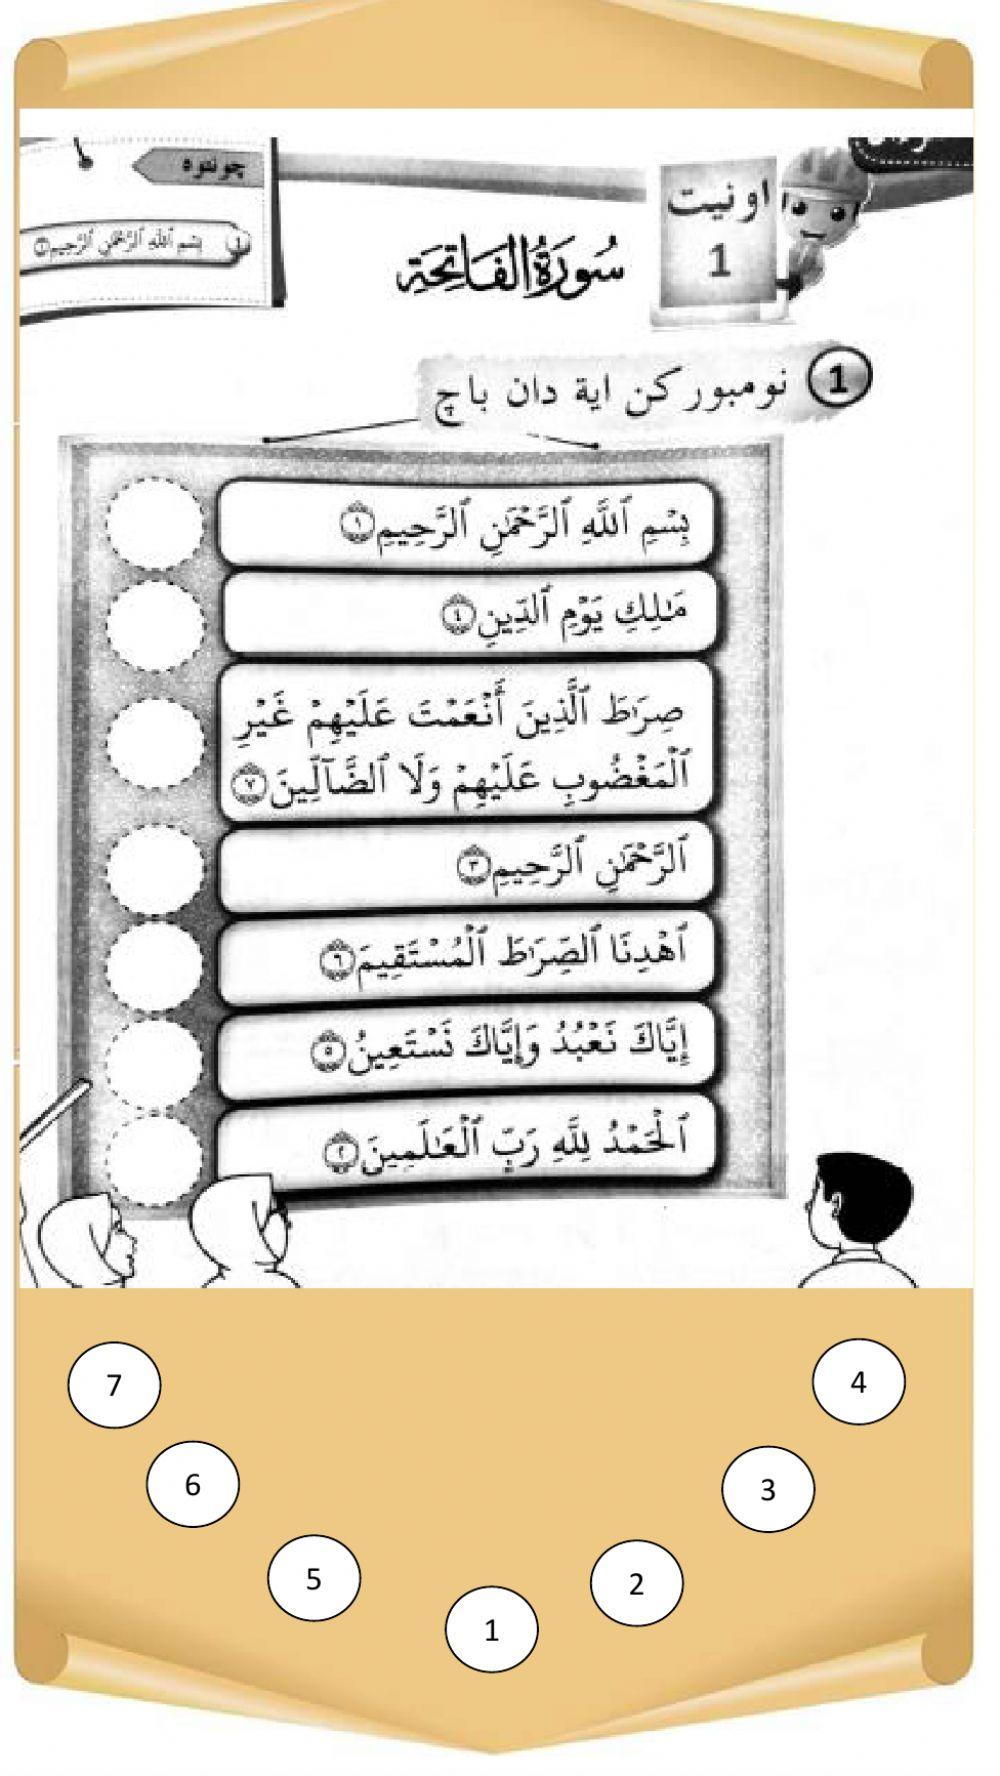 چونتوه
1 بِسْمِ ٱللَّهِ ٱلرَّحْمَٰنِ ٱلرَّحِيمِ ١
اونيت
1
سُورَةُ الْفَاتِحَةِ
1 نومبوركن اية دان باچ
بِسْمِ ٱللَّهِ ٱلرَّحْمَٰنِ ٱلرَّحِيمِ ١
مَٰلِكِ يَوْمِ ٱلدِّينِ ٤
صِرَٰطَ ٱلَّذِينَ أَنْعَمْتَ عَلَيْهِمْ غَيْرِ
ٱلْمَغْضُوبِ عَلَيْهِمْ وَلَا ٱلضَّآلِّينَ ٧
ٱلرَّحْمَٰنِ ٱلرَّحِيمِ ٣
ٱهْدِنَا ٱلصِّرَٰطَ ٱلْمُسْتَقِيمَ ٦
إِيَّاكَ نَعْبُدُ وَإِيَّاكَ نَسْتَعِينُ ٥
ٱلْحَمْدُ لِلَّهِ رَبِّ ٱلْعَٰلَمِينَ ٢
7
6
5
1
2
3
4